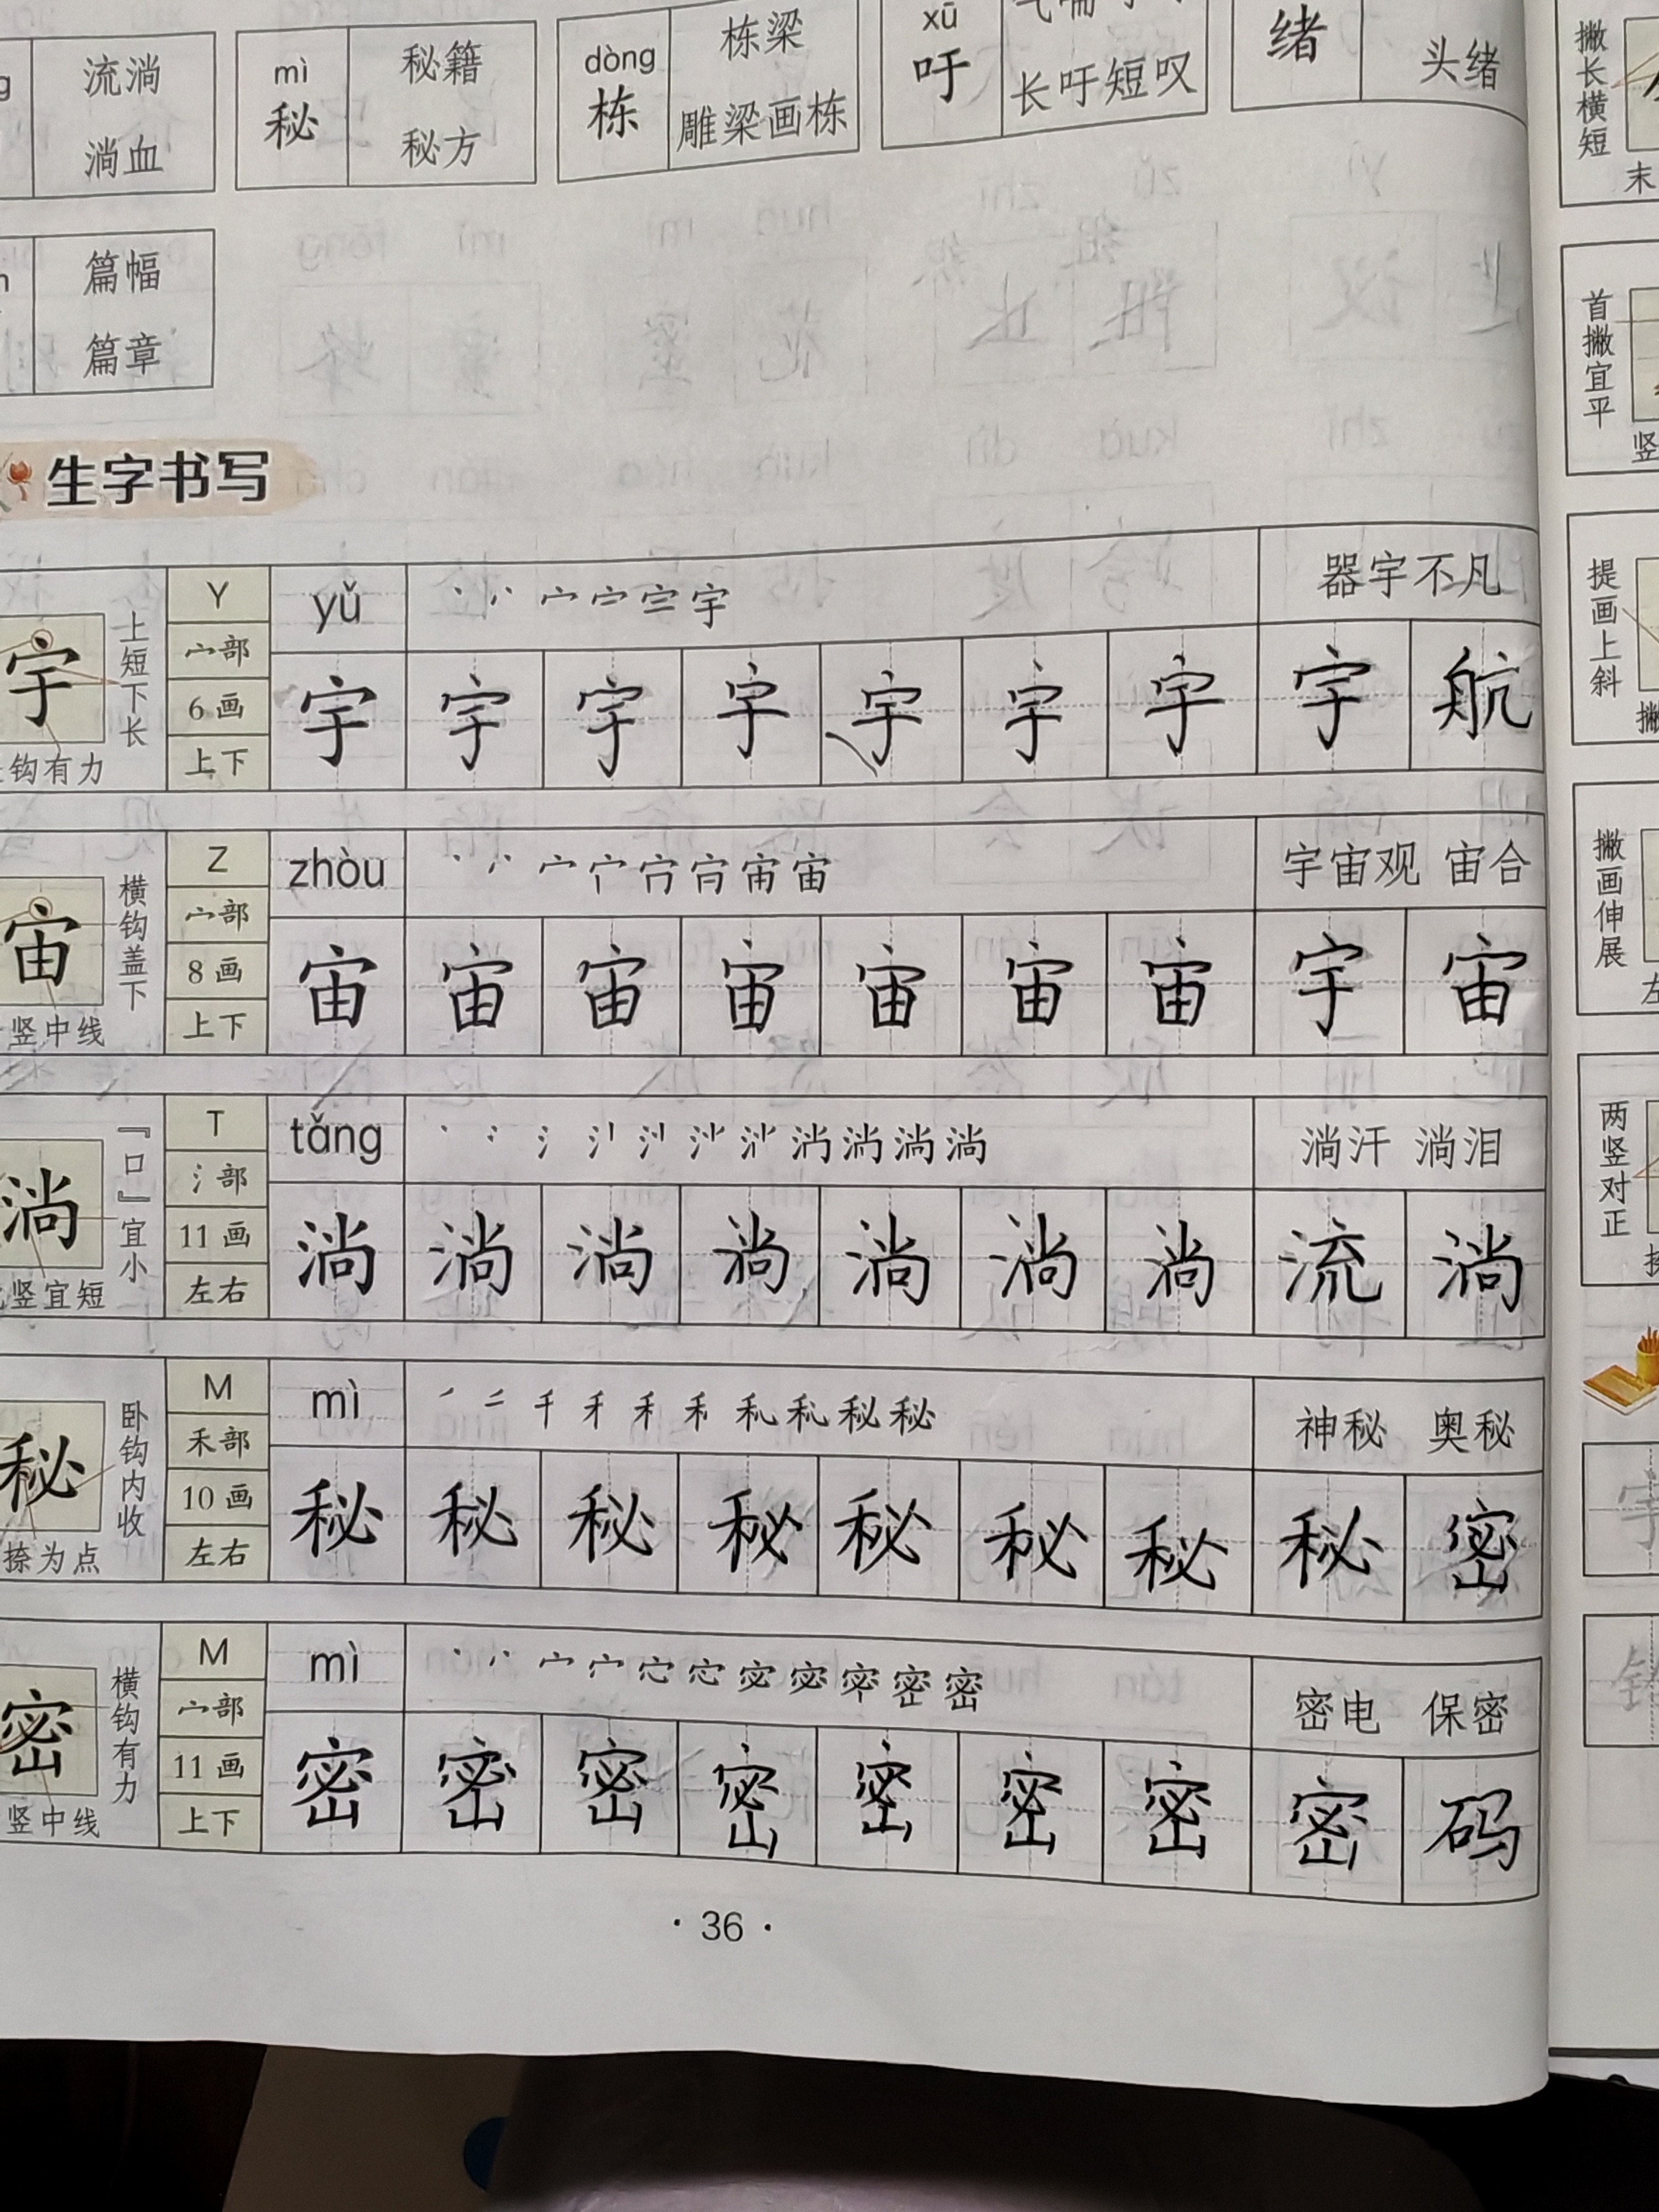 流淌
淌血
mì
秘
秘籍
秘方
dòng
栋
栋梁
雕梁画栋
xū
吁
长吁短叹
绪
头绪
篇幅
篇章
生字书写
宇
上短下长
钩有力
Y
宀部
6画
上下
yǔ
宇
器宇不凡
宇 宇 宇 宇 宇 宇 宇 宇 航
宙
横钩盖下
竖中线
Z
宀部
8画
上下
zhòu
宙
宇宙观 宙合
宙 宙 宙 宙 宙 宙 宙 宇 宙
淌
『口』宜小
竖宜短
T
氵部
11画
左右
tǎng
淌
淌汗 淌泪
淌 淌 淌 淌 淌 淌 淌 流 淌
秘
卧钩内收
捺为点
M
禾部
10画
左右
mì
秘
神秘 奥秘
秘 秘 秘 秘 秘 秘 秘 秘 密
密
横钩有力
竖中线
M
宀部
11画
上下
mì
密
密电 保密
密 密 密 密 密 密 密 密 码
·36·
撇长横短
末
首撇宜平
竖
提画上斜
撇
撇画伸展
左
两竖对正